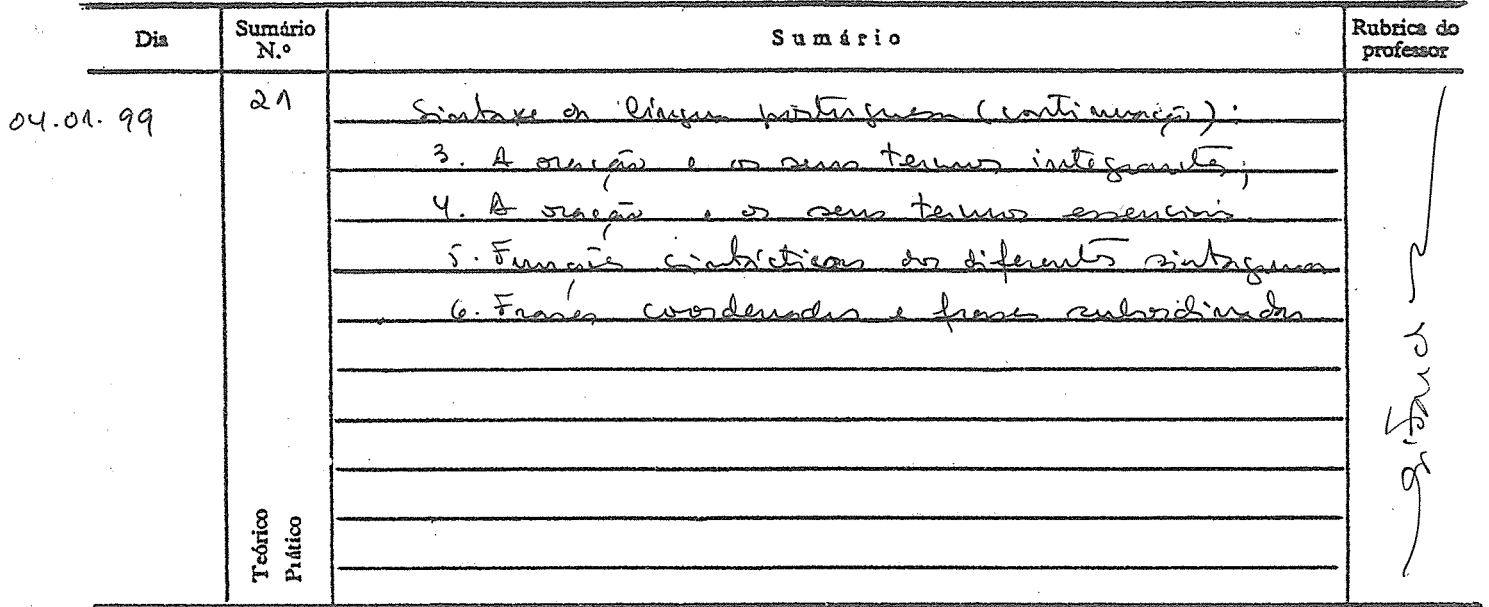 Dia
Sumário N.º
Sumário
Rubrica do professor
04.01.99
21
Sintaxe da língua portuguesa (continuação):
3. A oração e os seus termos integrantes;
4. A oração e os seus termos essenciais.
5. Funções sintácticas dos diferentes sintagmas
6. Frases coordenadas e frases subordinadas
Teórico
Prático